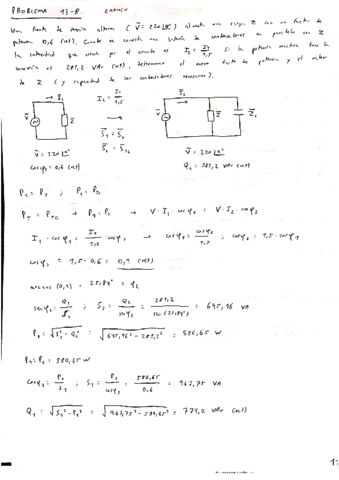 PROBLEMA 13-8. EXAMEN
Una fuente de tensión alterna ( V̄ = 220 |0° ) alimenta una carga Z con un factor de
potencia 0,6 (ind). Cuando se conecta una batería de condensadores en paralelo con Z
la intensidad que circula por el circuito es I₂ = I₁/1,5. Si la potencia reactiva tras la
conexión es 281,2 VAr (ind), determinar el nuevo factor de potencia y el valor
de Z (y capacidad de los condensadores necesarios).
→ I₁
I₂ = I₁/1,5
→ I₂
V̄
Z̄
→
V̄
Z̄
Z̄c
S̄₁ = S̄T
S̄₂ = S̄T2
V̄ = 220 |0°
cosφ₁ = 0,6 (ind)
V̄ = 220 |0°
Q₂ = 281,2 VAr (ind)
P₁ = PT ; P₂ = PT2
PT = PTC → P₁ = P₂ → V · I₁ · cosφ₁ = V · I₂ · cosφ₂
I₁ · cosφ₁ = I₁/1,5 · cosφ₂ → cosφ₁ = cosφ₂/1,5 ; cosφ₂ = 1,5 · cosφ₁
cosφ₂ = 1,5 · 0,6 = 0,9 (ind)
arccos (0,9) = 25,84° = φ₂
senφ₂ = Q₂/S₂ ; S₂ = Q₂/senφ₂ = 281,2/sen(25,84°) = 645,16 VA
P₂ = √(S₂² - Q₂²) = √(645,16² - 281,2²) = 580,65 W
P₁ = P₂ = 580,65 W
cosφ₁ = P₁/S₁ ; S₁ = P₁/cosφ₁ = 580,65/0,6 = 967,75 VA
Q₁ = √(S₁² - P₁²) = √(967,75² - 580,65²) = 774,2 VAr (ind)